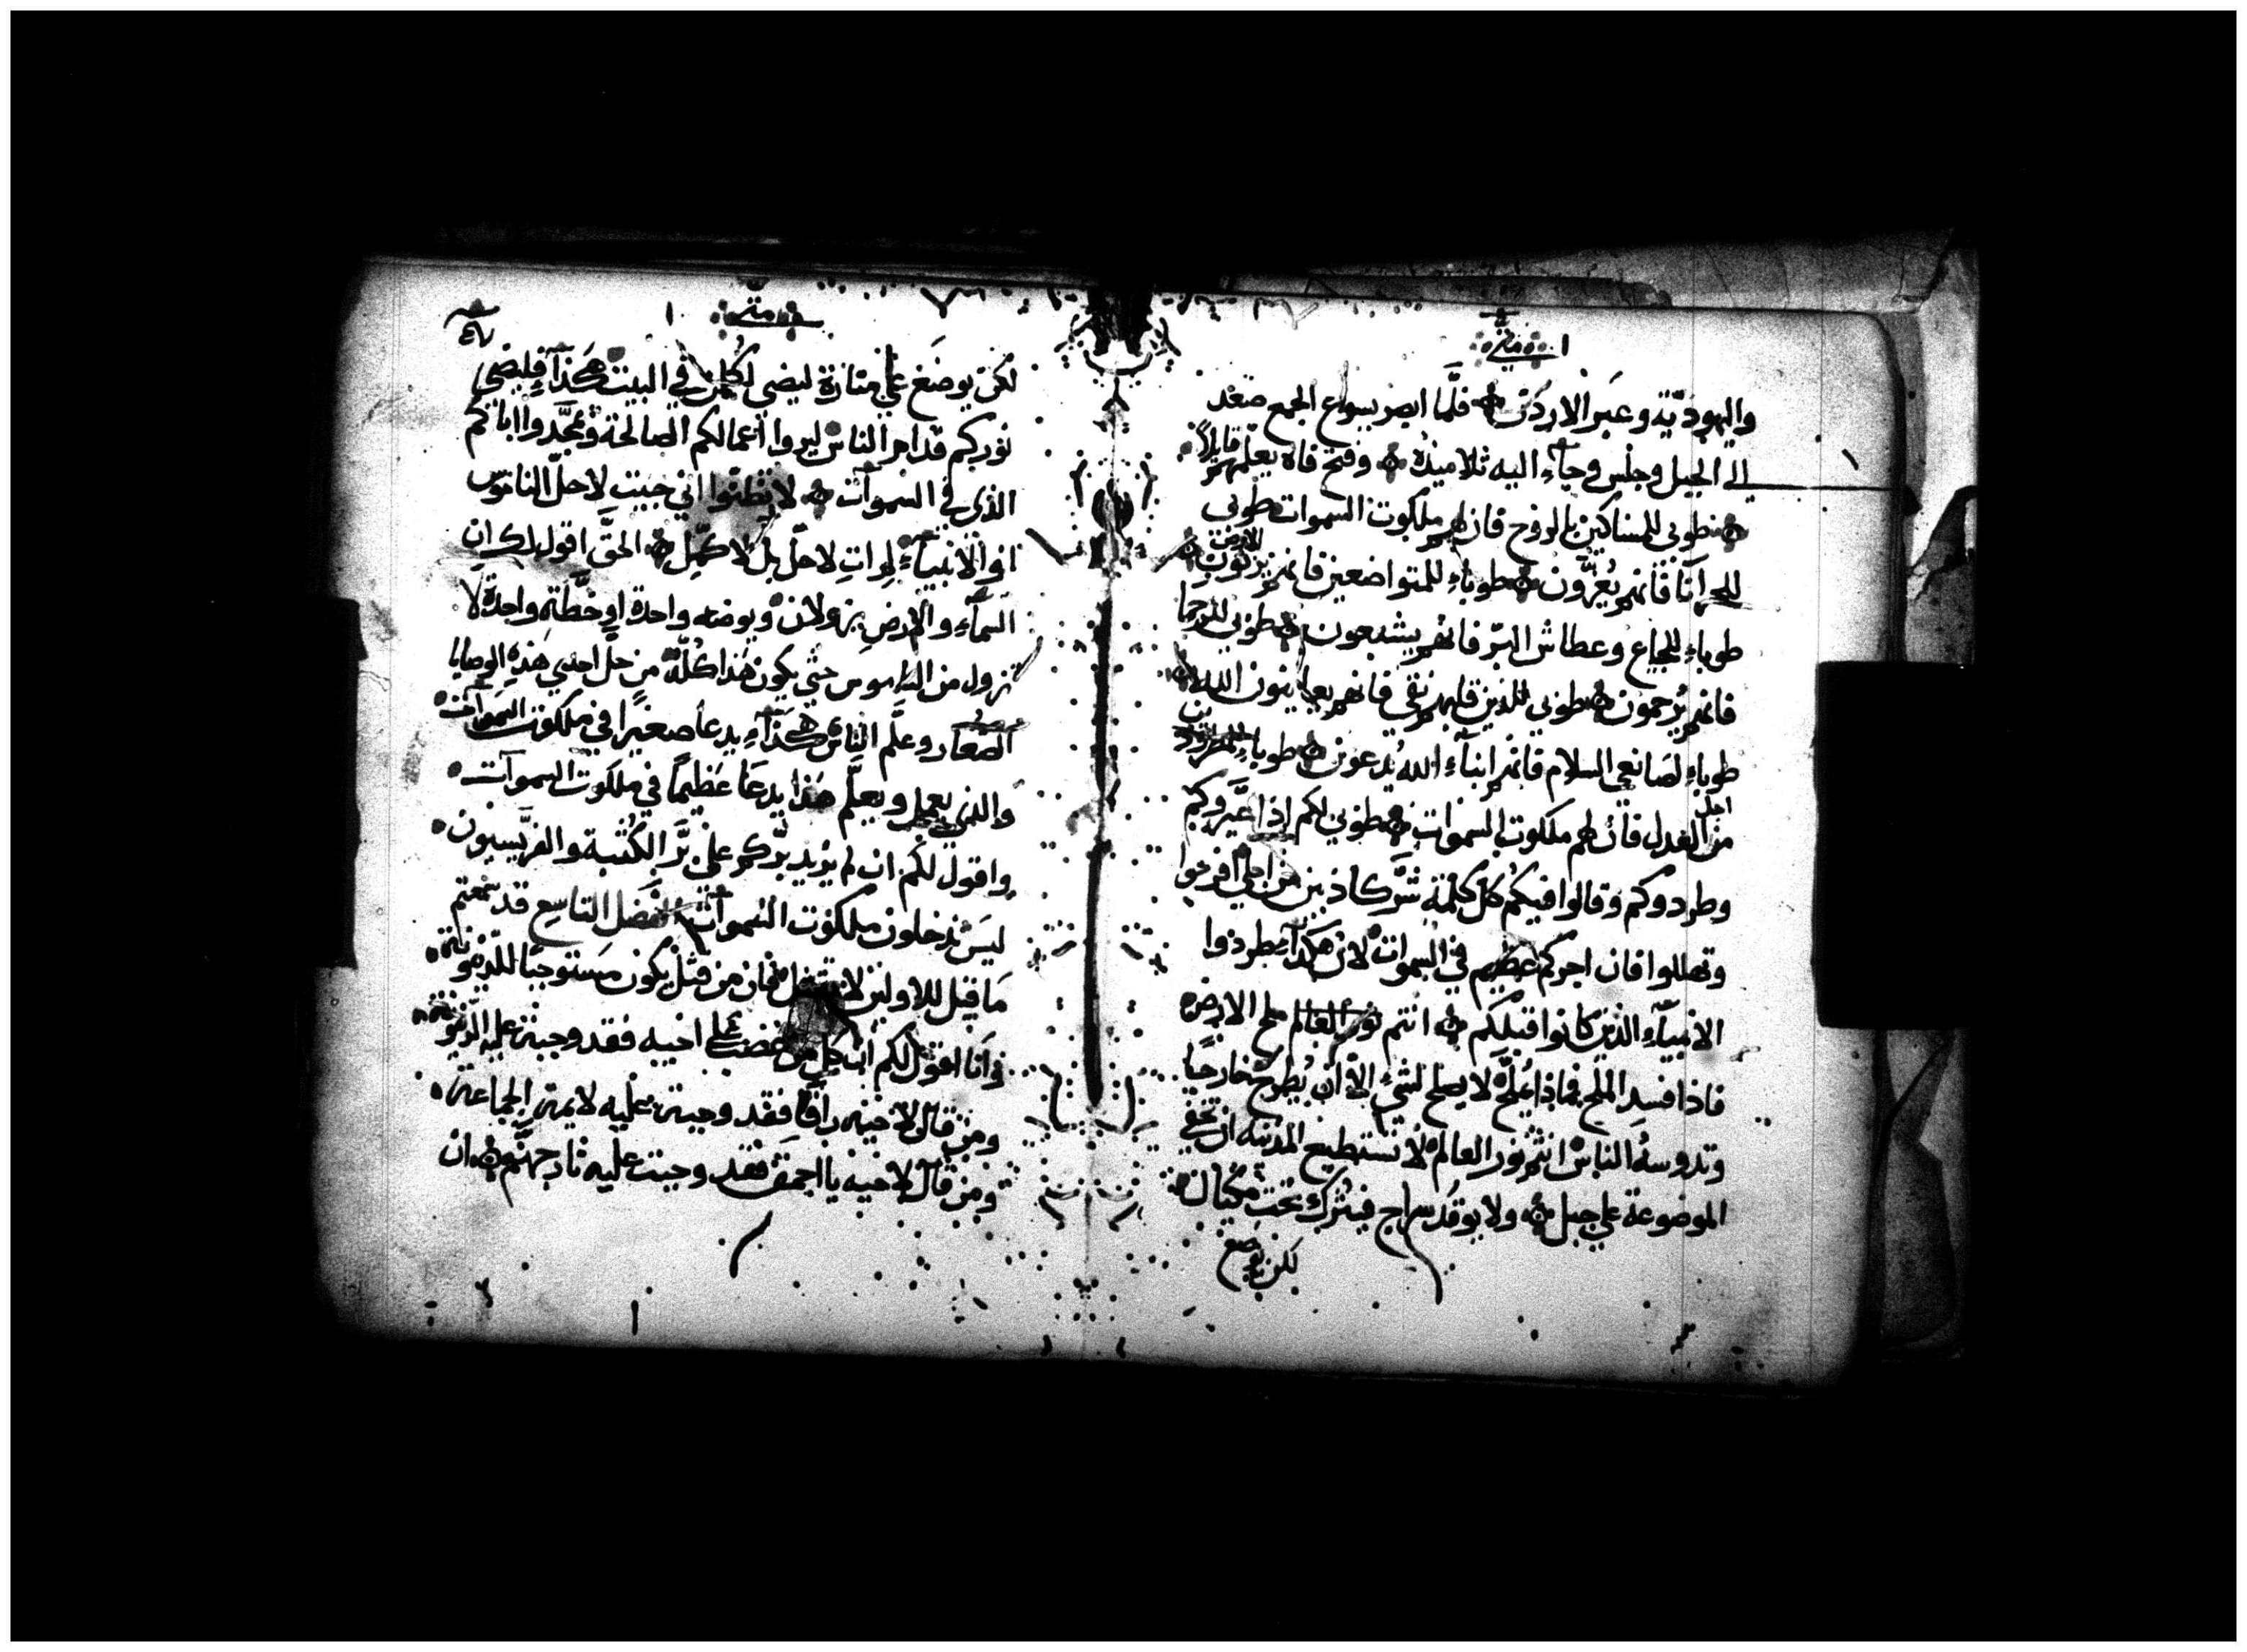 ا متى
واليهوديّة وعَبر الاردن فلَّما ابصر يسوع الجمع صعَد
الى الجبل وجلس وجآء اليه تلاميذه وفتح فاه يعلّمهم قايلاً
طوبى للمساكين بالروح فان لهم ملكوت السموات طوبى
للحزانا فانهم يُعزَّون طوباءِ للمتواضعين فانهم يرثون الارض
طوباءِ للجياع وعطاش البّر فانهم يشبعون طوبى للرحما
فانهم يُرحمون طوبى للذين قلبهم نقي فانهم يعاينون الله
طوباءِ لصَانعي السلام فانهم ابنآءِ الله يُدعون طوباءِ للمطرودين
من اجل العدل فان لهم ملكوت السموات طوبى لكم اذا عيَّروكم
وطردوكم وقالوا فيكُم كل كلمَة شَّر كاذبين من اجلي افرحوا
وتهللوا فان اجركم عظيم في السموات لان هكذا طردوا
الانبيآءِ الذين كانوا قبلكم انتم نور العالم ملح الارض
فاذا فسد الملح فبماذا يُملَّح لا يصلح لشيءٍ الّا ان يُطرح خارجًا
وتدوسهُ الناس انتم نور العالم لا تستطيع المدينه ان تخفي
الموضوعة على جبل ولا يوقد سراج فيُترك تحت مكيال
لكن يوضع
متى ا
٤٧
لكن يوضَع على منارة ليضي لكل من في البيت هَكذآ فليضي
نوركم قدام الناس ليروا اعمالكم الصالحة ويمجَّدوا اباكم
الذي في السموات لا تظنّوا اني جيت لاحلّ الناموس
او الانبيآءِ لم اتِ لاحلّ بل لاكمّل الحقَّ اقول لكم ان
السمآءِ والارض يزولان ويوضه واحدة او خطَّة واحدة لا
تزول من الناموس حتى يكون هَذا كُلَّه من حلّ احدى هَذه الوصايا
الصغار وعلَّم الناس هكذآءِ يدعا صغيرًا في ملكوت السموات
والذي يعمل ويعلّم هَذا يدعَا عَظيمًا في ملكوت السموآت
واقول لكم ان لم يزيد برّكم على برَّ الكَتبة والفريّسيون
ليسَ تدخلون ملكوت السموات الفَصل التاسع قد سمعتم
مَا قيل للاولين لا تقتل فان من قتل يكون مستوجبًا للدّينونة
وانا اقول لكم ان كل من غضب على اخيه فقد وجبت عليه الدّينونة
ومن قال لاخيه راقَّا فقد وجبت عليه لايمة الجماعة
ومن قال لاخيه يا احمَق فقد وجبت عليه نار جهنَّم ان